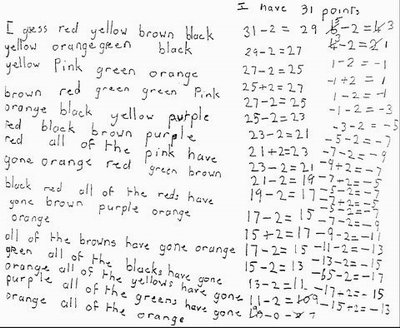 I have 31 points
I gess red yellow brown black 31-2=29 5-2=3
yellow orange green black 29-2=27 4-2=1
yellow Pink green orange 27-2=25 1-2=-1
brown red green green Pink 25+2=27 -1+2=1
orange black yellow purple 27-2=25 1-2=-1
red black brown purple 25-2=23 -1-2=-3
red all of the pink have 23-2=21 -3-2=-5
gone orange red green brown 21+2=23 -5-2=-7
23-2=21 -7-2=-9
black red all of the reds have 21-2=19 -9+2=-7
gone brown purple orange 19-2=17
orange 17-2=15
all of the browns have gone orange 15+2=17 -9-2=-11
green all of the blacks have gone 17-2=15 -11-2=-13
orange all of the yellows have gone 15-2=13 -13-2=-15
purple all of the greens have gone 13-2=11 -17+2=-15
orange all of the orange 11-2= -15+2=-13